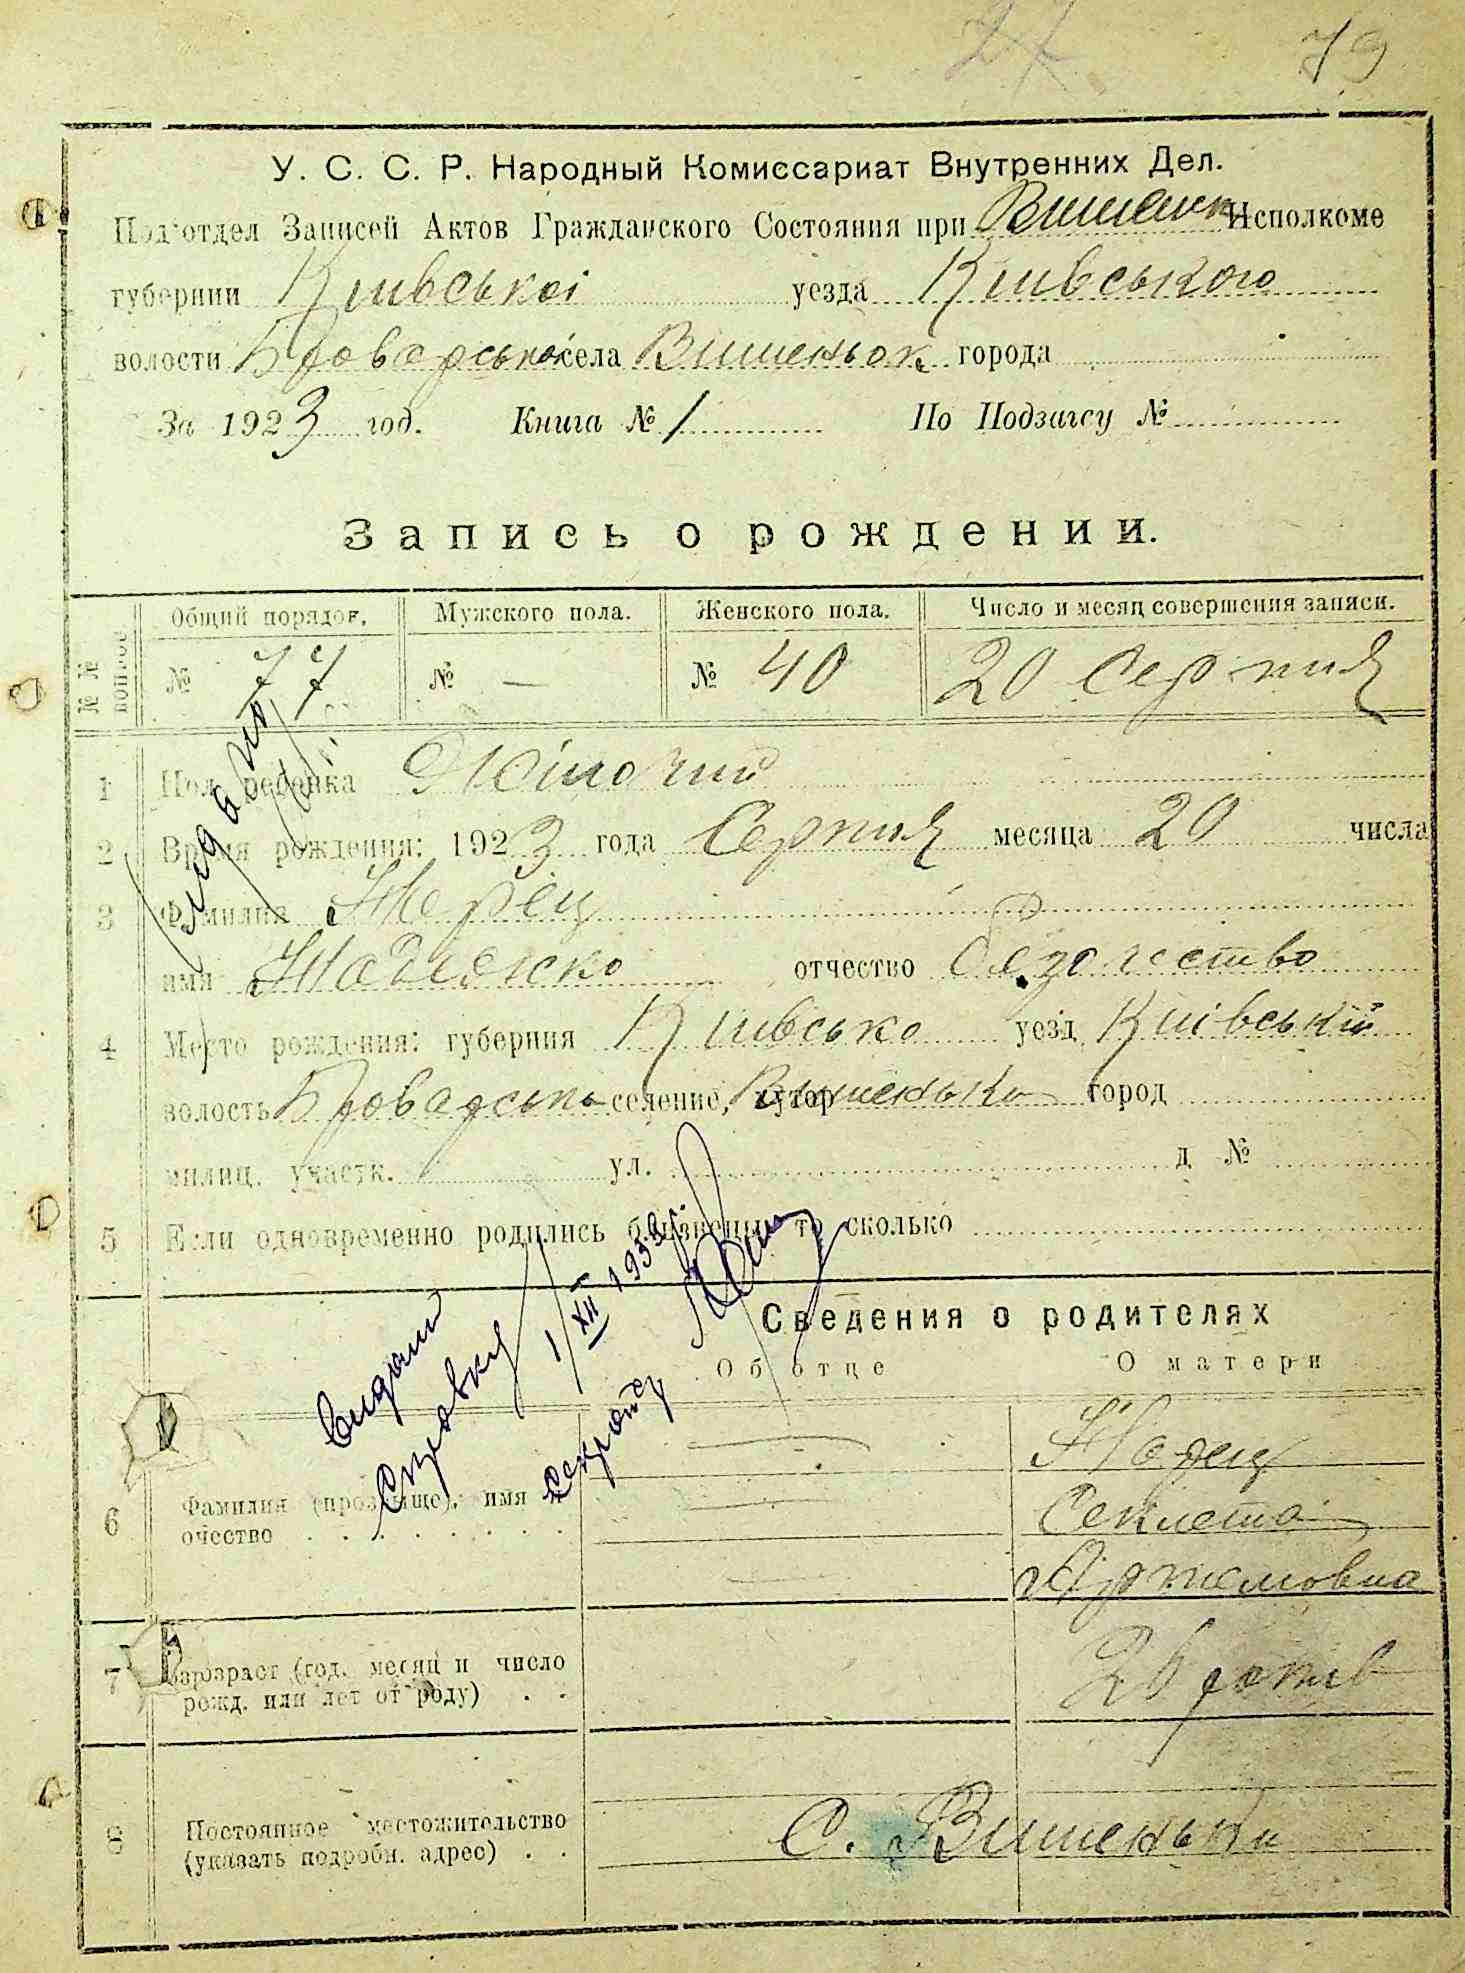 79
У. С. С. Р. Народный Комиссариат Внутренних Дел.
Под'отдел Записей Актов Гражданского Состояния при Вишеньк Исполкоме
губернии Київської уезда Київського
волости Броварської села Вишеньок города
За 1923 год. Книга № 1 По Подзагсу №
Запись о рождении.
№№ вопросов Общий порядок. Мужского пола. Женского пола. Число и месяц совершения записи.
№ 77 № — № 40 20 Серпня
1 Пол ребенка Жіночий
2 Время рождения: 1923 года Серпня месяца 20 числа
3 Фамилия
имя отчество
4 Место рождения: губерния Київська уезд Київський
волость Броварська селение, хутор Вишеньки город
милиц. участк. ул. д №
5 Если одновременно родились близнецы, то сколько
видано
Видани
Справку 1/XII 1933
секретар
Сведения о родителях
Об отце О матери
6 Фамилия (прозвище), имя и очество
Секлета
Артемовна
7 Возраст (год, месяц и число рожд. или лет от роду) 26 років
8 Постоянное местожительство (указать подробн. адрес) С. Вишеньки